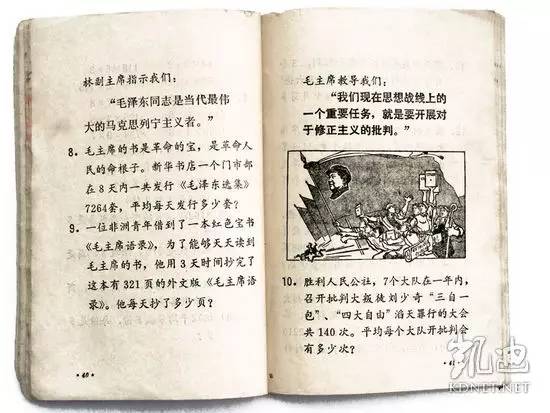 林副主席指示我们：
“毛泽东同志是当代最伟
大的马克思列宁主义者。”
8．毛主席的书是革命的宝，是革命人
民的命根子。新华书店一个门市部
在 8 天内一共发行《毛泽东选集》
7264套，平均每天发行多少套？
9．一位非洲青年借到了一本红色宝书
《毛主席语录》，为了能够天天读到
毛主席的书，他用 3 天时间抄完了
这本有 321 页的外文版《毛主席语
录》。他每天抄了多少页？
·40·
毛主席教导我们：
“我们现在思想战线上的
一个重要任务，就是要开展对
于修正主义的批判。”
10．胜利人民公社，7个大队在一年内，
召开批判大叛徒刘少奇“三自一
包”、“四大自由”滔天罪行的大会
共 140 次。平均每个大队开批判会
有多少次？
凯迪
KDNET.NET